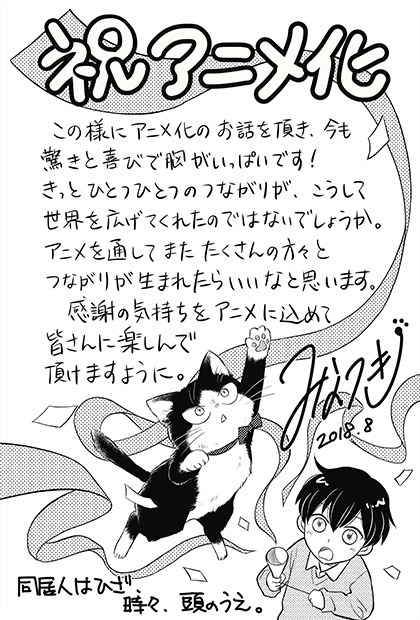 祝アニメ化
この様にアニメ化のお話を頂き、今も
驚きと喜びで胸がいっぱいです！
きっとひとつひとつのつながりが、こうして
世界を広げてくれたのではないでしょうか。
アニメを通してまたたくさんの方々と
つながりが生まれたらいいなと思います。
感謝の気持ちをアニメに込めて
皆さんに楽しんで
頂けますように。
みなつき
2018.8
同居人はひざ、
時々、頭のうえ。